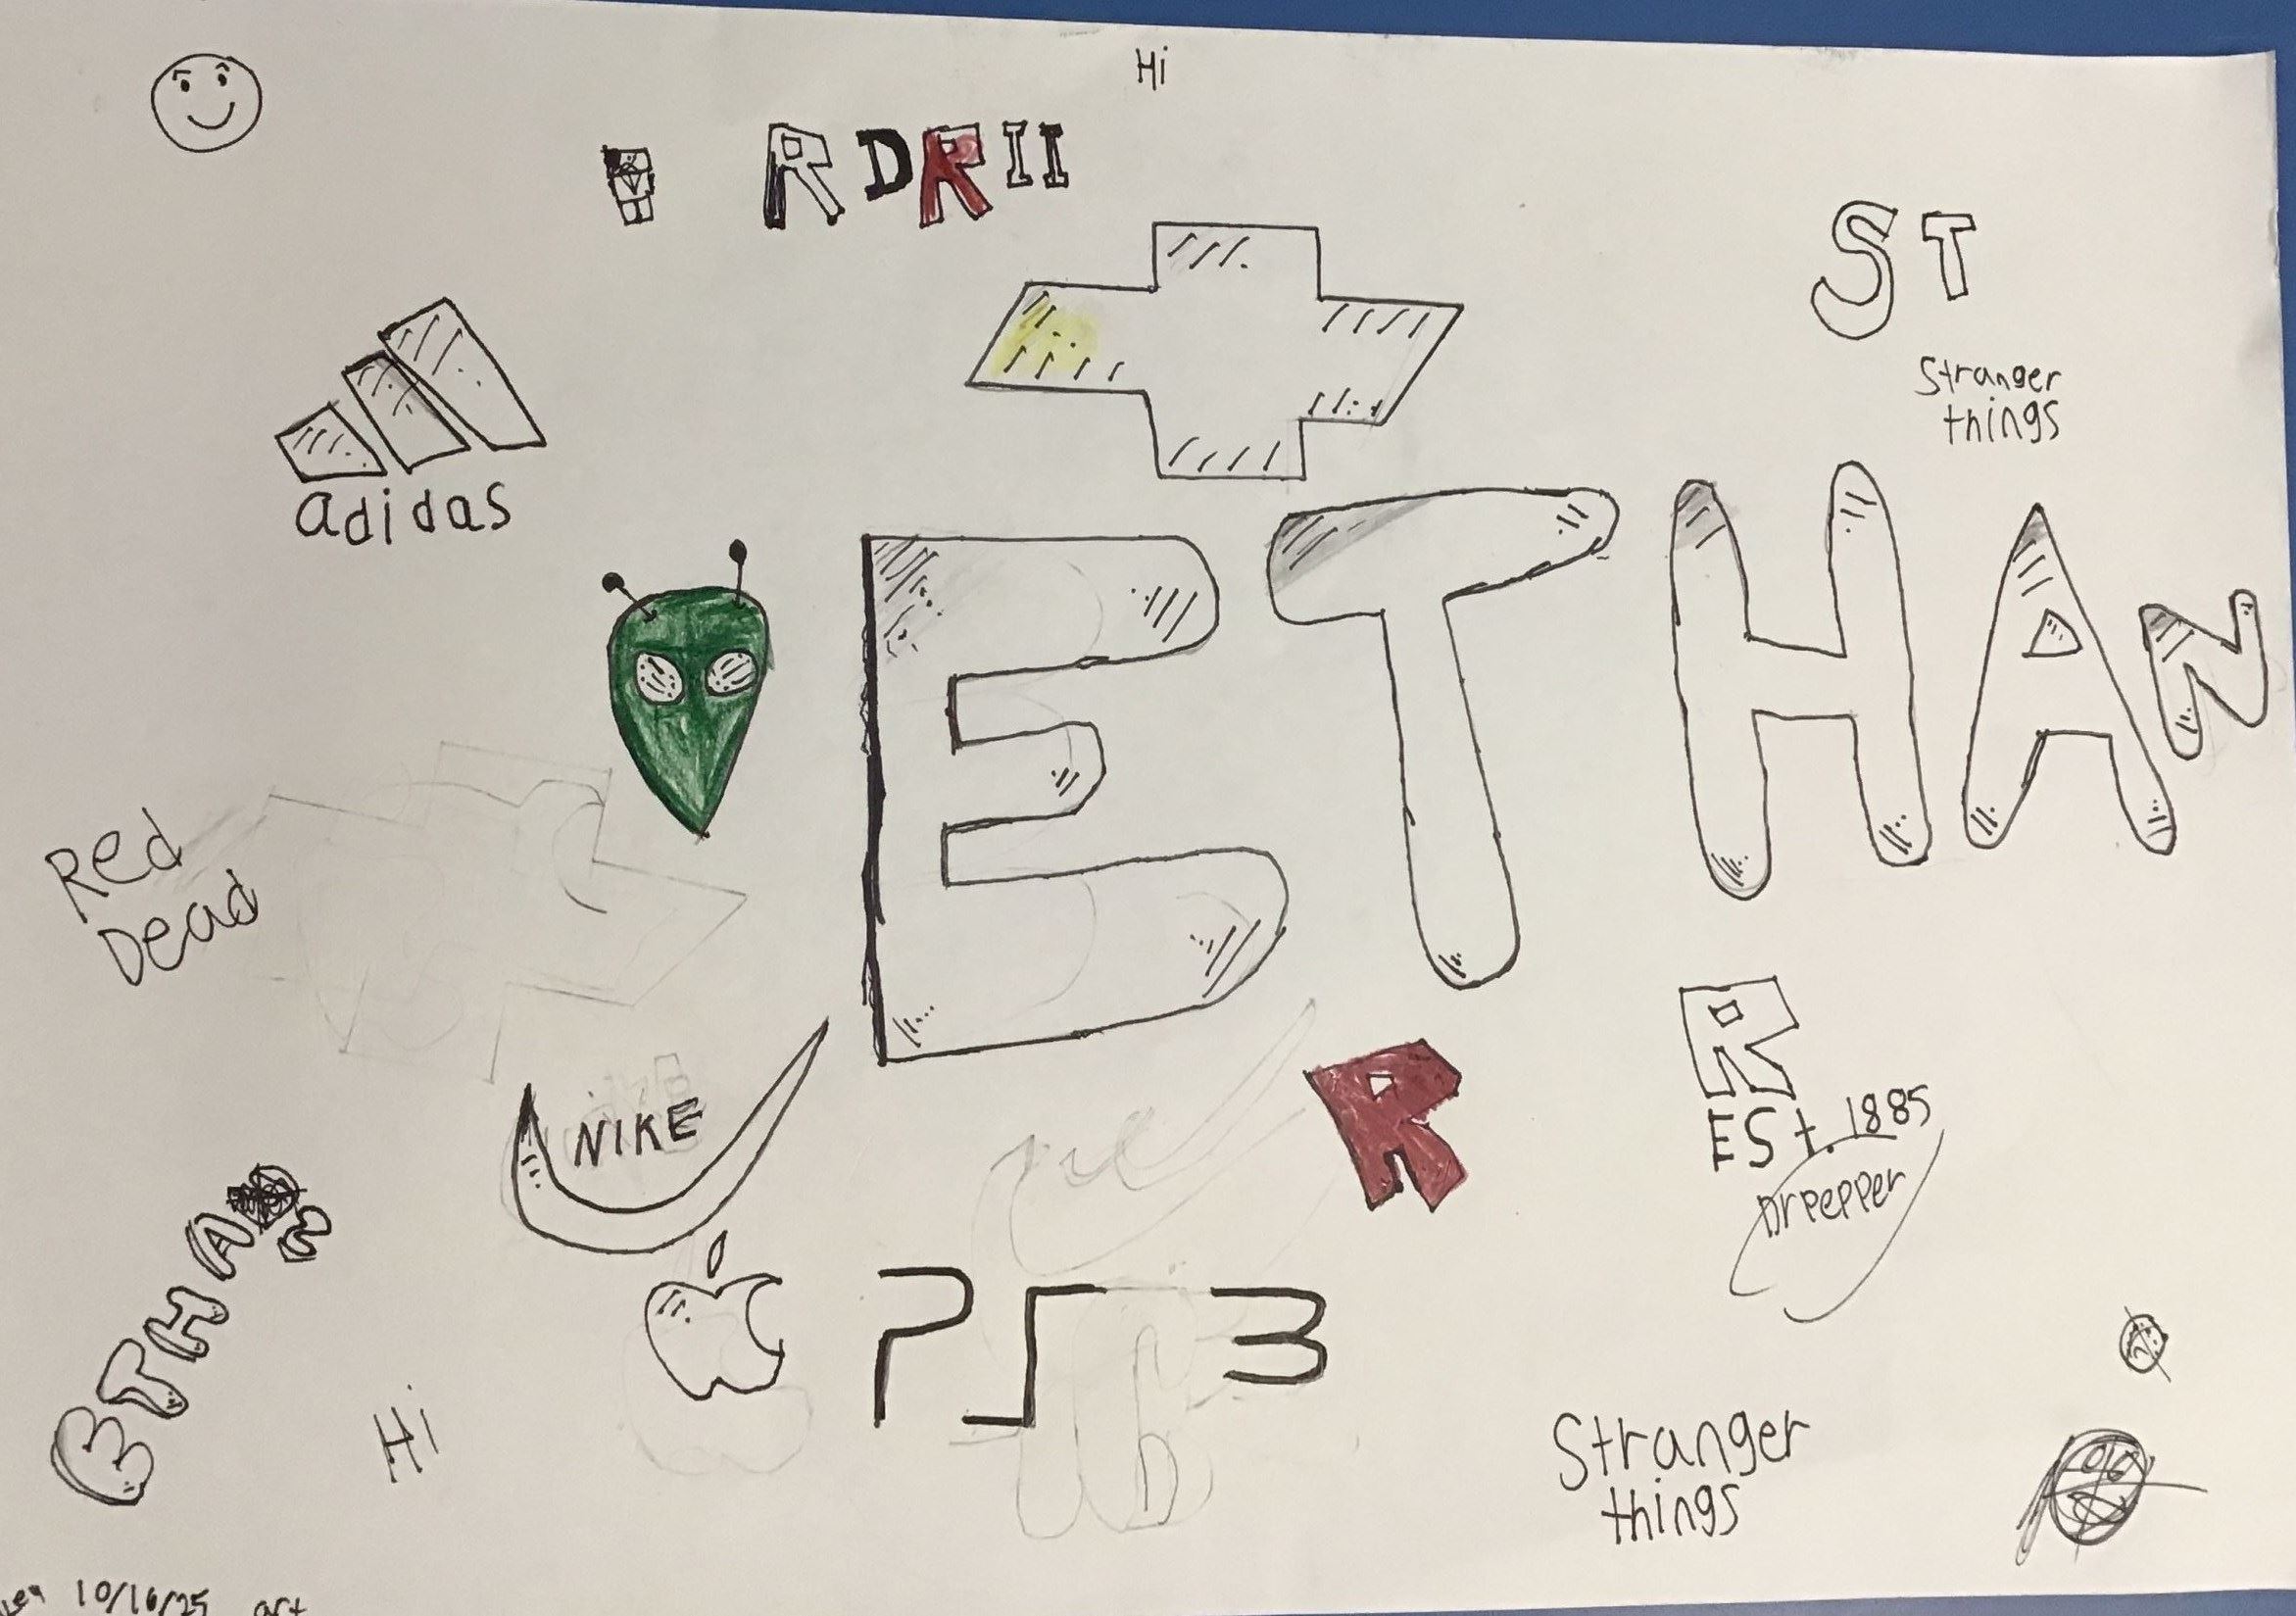 Hi
RDRII
ST
Stranger
things
adidas
ETHAN
Red
Dead
NIKE
R
R
ESt. 1885
DrPepper
ETHAN
PS3
Hi
Stranger
things
10/16/25 art